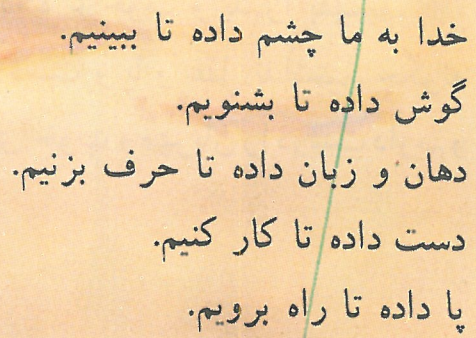 خدا به ما چشم داده تا ببینیم.
گوش داده تا بشنویم.
دهان و زبان داده تا حرف بزنیم.
دست داده تا کار کنیم.
پا داده تا راه برویم.